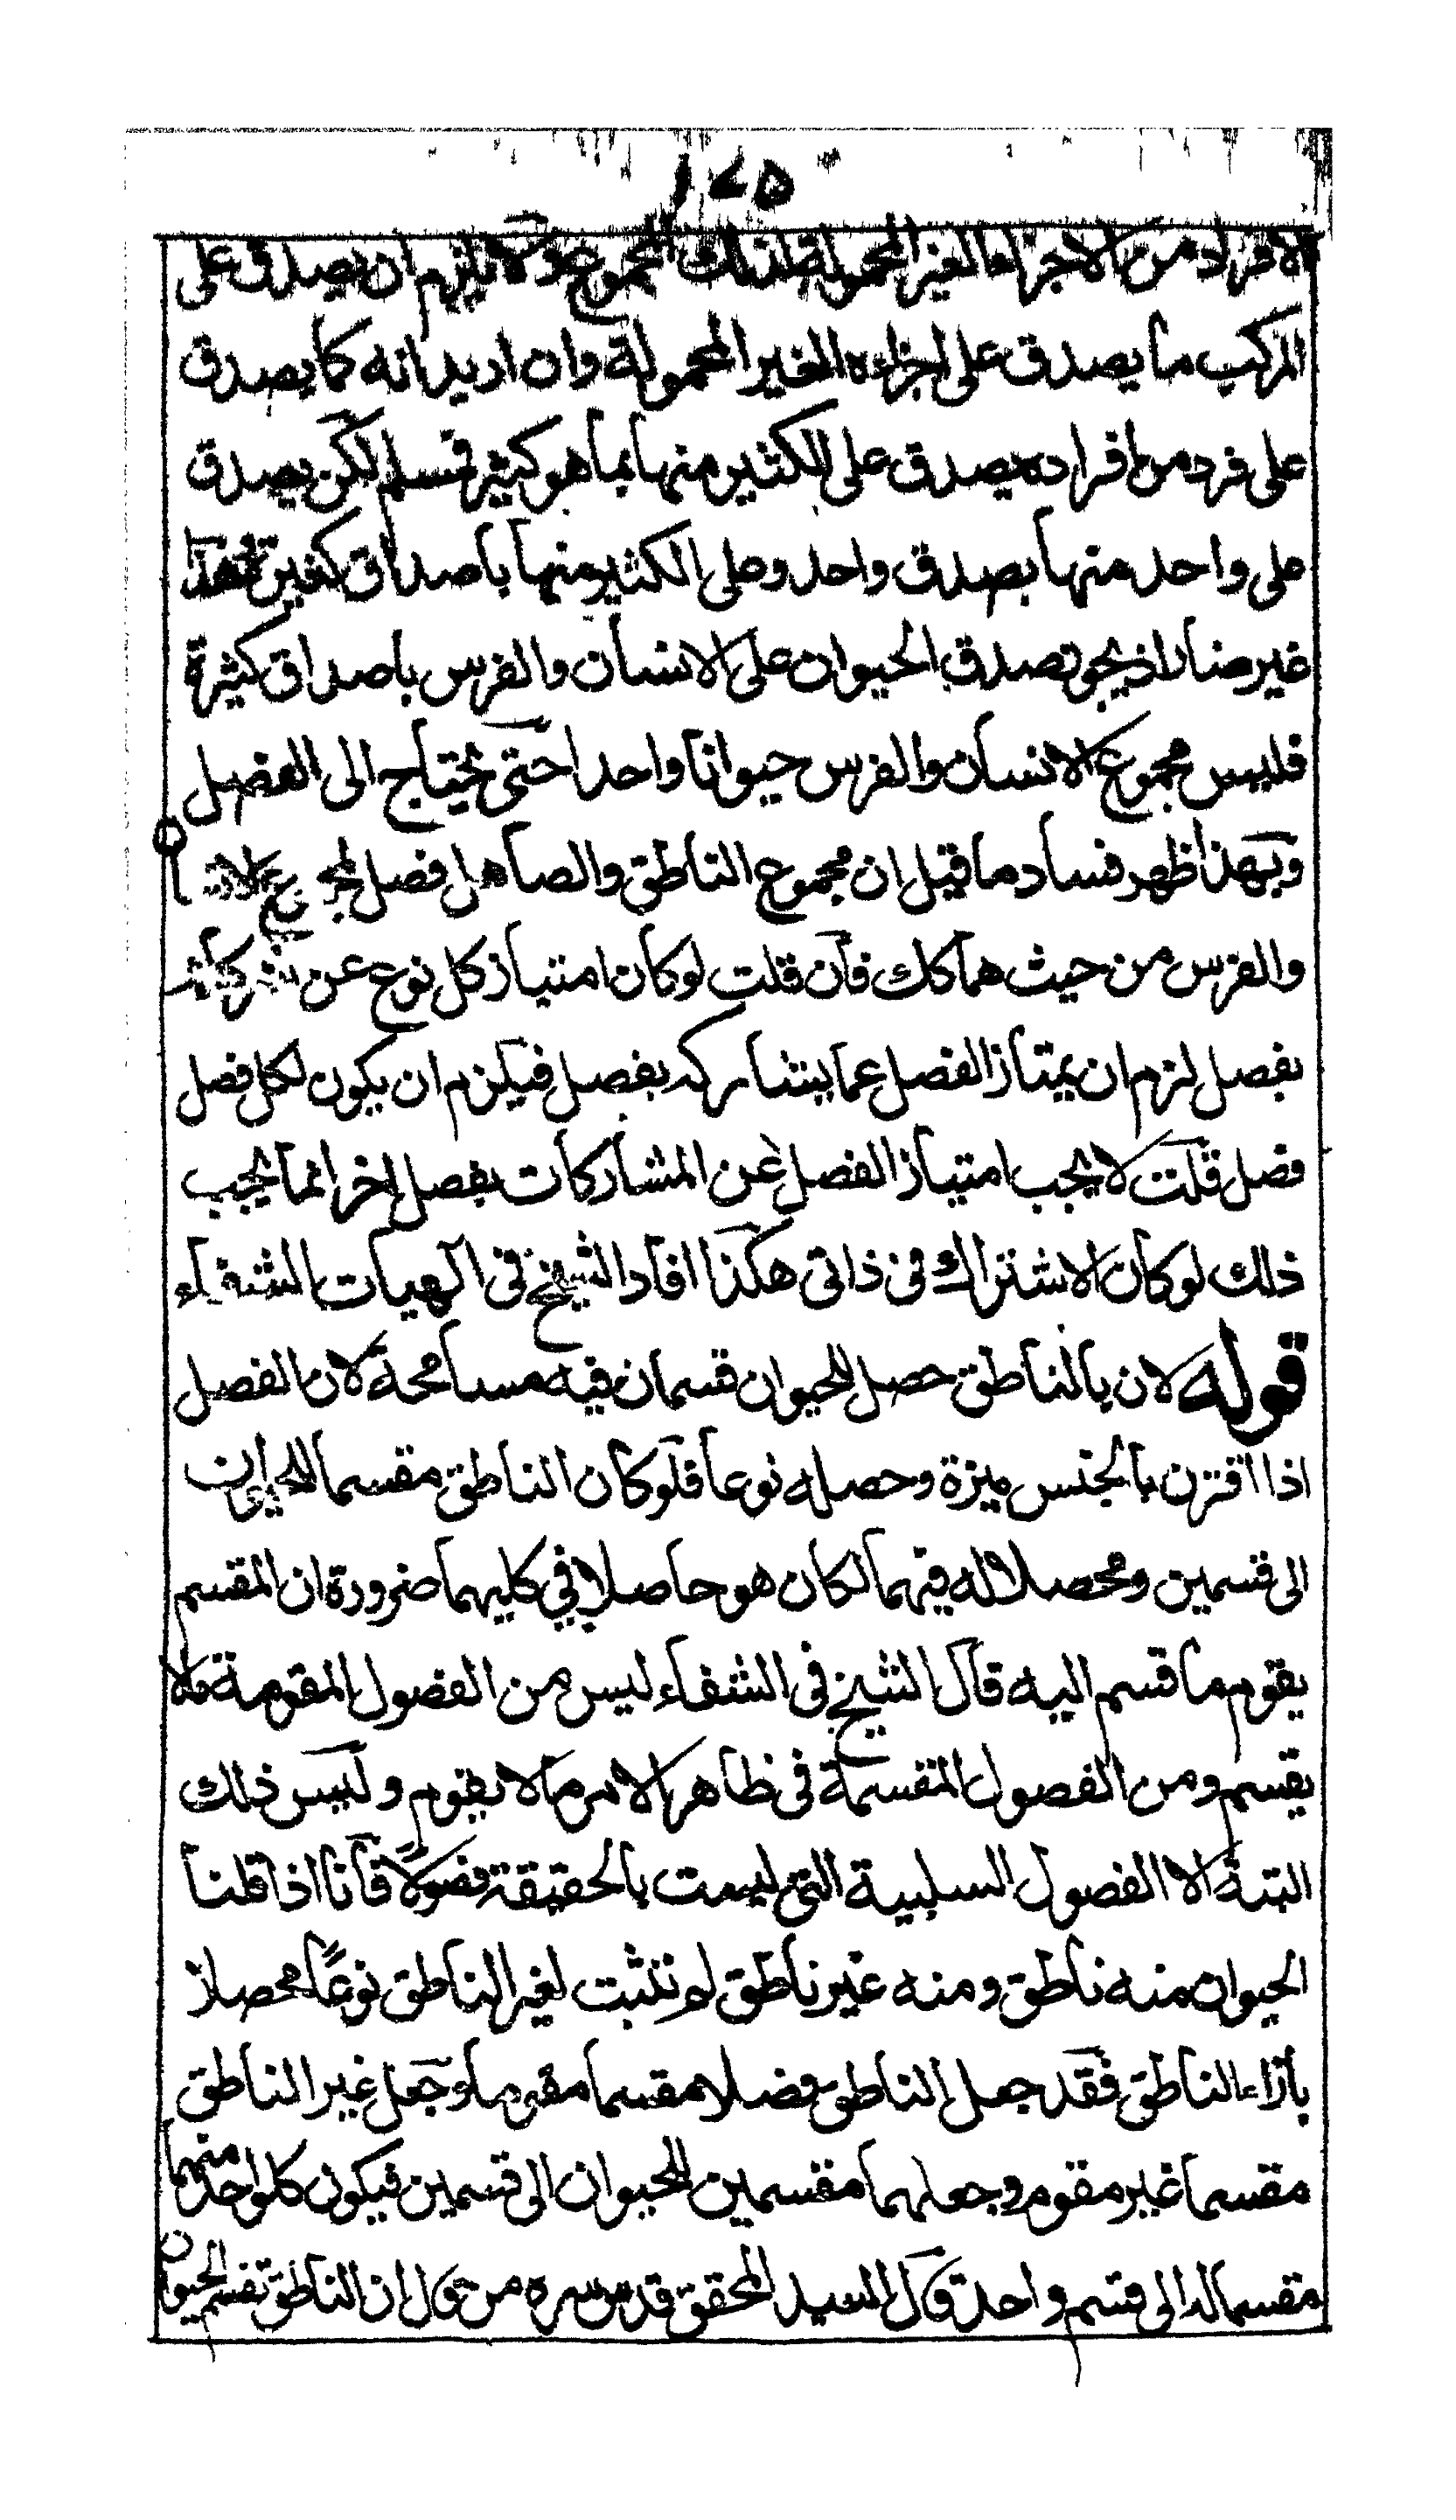 ١٢٥
الافراد من الاجزاء الغير المحمولة لذلك المجموع ولا يلزم ان يصدق على
المركب ما يصدق على اجزاءه الغير المحمولة وان اريد انه كما يصدق
على فرد من افراده يصدق على الكثير منها بما هو كثير فمسلم لكن يصدق
على واحد منها بصدق واحد وعلى الكثير منها باصداق كثيرة
غير ضار اذ يجوز صدق الحيوان على الانسان والفرس باصداق كثيرة
فليس مجموع الانسان والفرس حيوانا واحدا حتى يحتاج الى الفصل
وبهذا ظهر فساد ما قيل ان مجموع الناطق والصاهل فصل لمجموع الانسان
والفرس من حيث هما كك فان قلت لو كان امتياز كل نوع عن مشاركاته
بفصل لزم ان يمتاز الفصل عما يشاركه بفصل فيلزم ان يكون لكل فصل
فصل قلت لا يجب امتياز الفصل عن المشاركات بفصل اخر انما يجب
ذلك لو كان الاشتراك في ذاتى هكذا افاد الشيخ في الهيات الشفاء
قوله لان بالناطق حصل للحيوان قسمان فيه مسامحة لان الفصل
اذا اقترن بالجنس ميزه وحصله نوعا فلو كان الناطق مقسما للحيوان
الى قسمين ومحصلا له فيهما لكان هو حاصلا في كليهما ضرورة ان المقسم
يقوم ما قسم اليه قال الشيخ في الشفاء ليس من الفصول المقومة مالا
يقسم ومن الفصول المقسمة في ظاهر الامر ما لا يقوم وليس ذلك
البتة الا الفصول السلبية التى ليست بالحقيقة فصولا فانا اذا قلنا
الحيوان منه ناطق ومنه غير ناطق لم نثبت لغير الناطق نوعًا محصلا
بازاء الناطق فقد جعل الناطق فصلا مقسما مقوما وجعل غير الناطق
مقسما غير مقوم وجعلهما مقسمين للحيوان الى قسمين فيكون كلواحد منهما
مقسما له الى قسم واحد قال السيد المحقق قدس سره من قال ان الناطق تقسم الحيوان